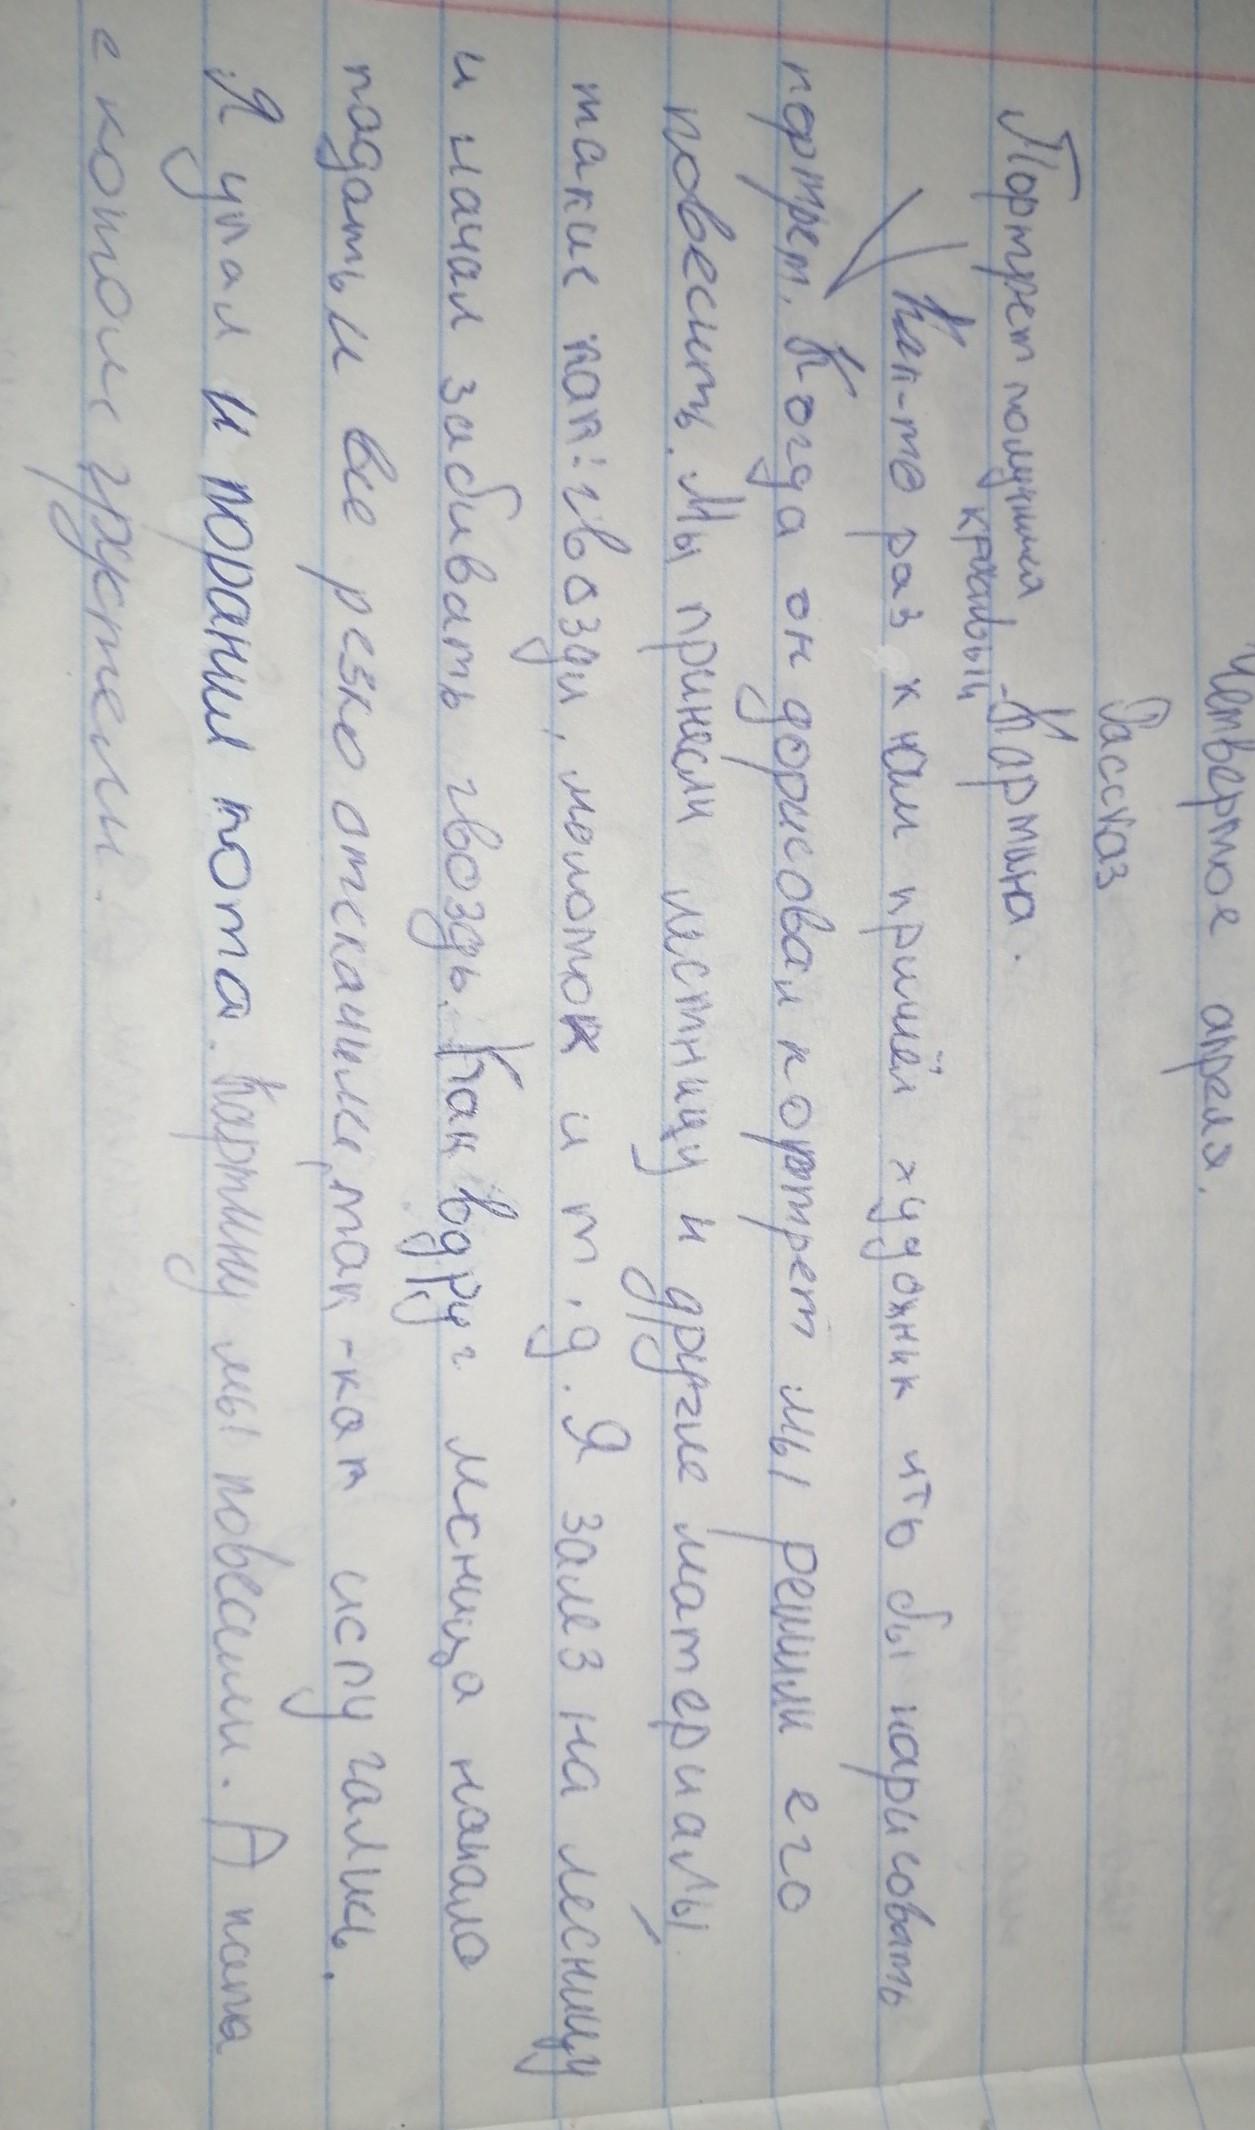 Четвертое апреля.
Рассказ
Портрет получился - Картина.
красивый
Как-то раз к нам пришёл художник что бы нарисовать
портрет. Когда он дорисовал портрет мы решили его
повесить. Мы принесли лестницу и другие материалы
такие как: гвозди, молоток и т.д. Я залез на лесницу
и начал забивать гвоздь. Как вдруг лесница начала
подать и все резко отскачили, так-как испугались.
Я упал и поранил кота. Картину мы повесили. А папа
с котом грустели.